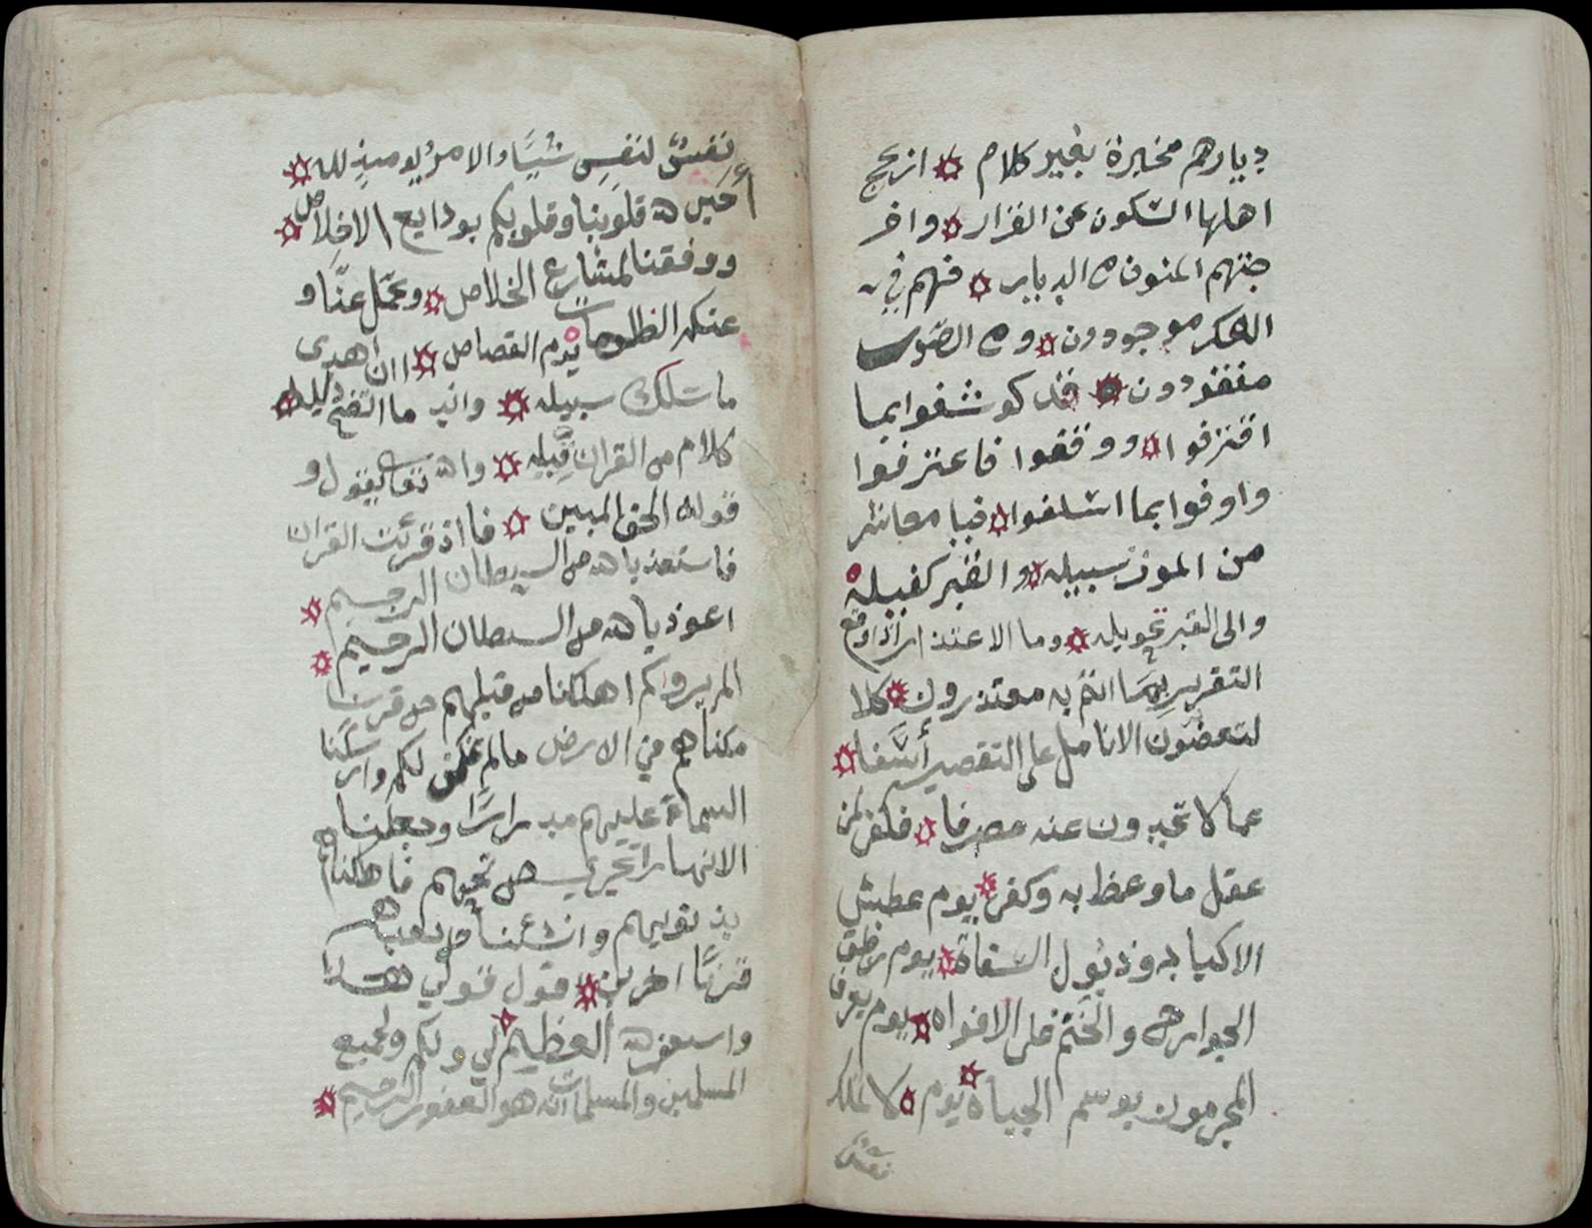 ديارهم مخبرة بغير كلام ازعج
اهلها السكون عن القرار واخر
جتهم المنون من الديار فهم في
العكر موجودون ومن الصور
مفقودون قد كوشفوا بما
اقترفوا ووقفوا فاعترفوا
واوفوا بما اسلفوا فيا معاشر
من الموت سبيله والقبر كفيله
والى القبر تحويله وما الاعتذار اذا وقع
التقرير بما انتم به معتذرون كلا
لتعضون الانامل على التقصير أسفا
عما لا تجدون عنه مصرفا فكفى لمن
عقل ما وعظ به وكفى يوم عطش
الاكباد وذبول الشفاة يوم نطق
الجوارح والختم على الافواه يوم يعرف
المجرمون بوسم الجباه يوم لا تملك
نفس
نفس لنفس شيئا والامر يومئذ لله
أحيى الله قلوبنا وقلوبكم بودايع الاخلاص
ووفقنا لمشارع الخلاص وتحمل عنا و
عنكم الظلومات يوم القصاص ان اهدى
ما سلك سبيله واني ما اتضح دليله
كلام من القران قيله والله تعالى يقول و
قوله الحق المبين فااذ قرئت القران
فاستعذ بالله من السيطان الرجيم
اعوذ بالله من السيطان الرجيم
الم يروا كم اهلكنا من قبلهم من قرن
مكناهم في الارض مالم نمكن لكم وارسلنا
السماء عليهم مدرارا وجعلنا
الانهار تجري من تحتهم فاهلكناهم
بذنوبهم وانشئنا من بعدهم
قرنا اخرين قول قولي هذا
واستغفر الله العظيم لي ولكم ولجميع
المسلمين والمسلمات انه هو الغفور الرحيم